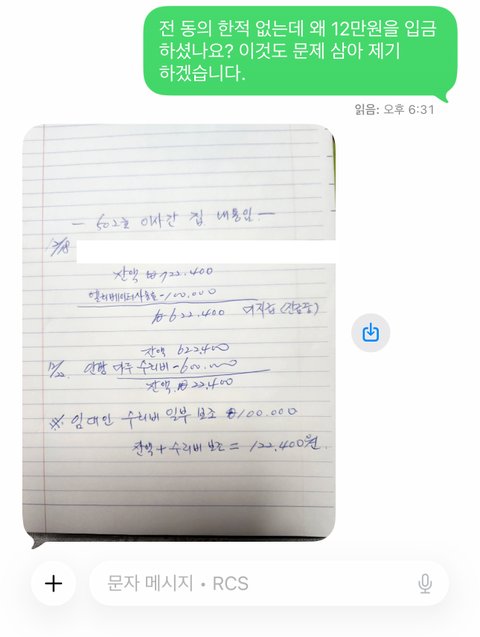 전 동의 한적 없는데 왜 12만원을 입금
하셨나요? 이것도 문제 삼아 제기
하겠습니다.
읽음: 오후 6:31
— 502호 이사간 집 내용임 —
잔액 ₩722.400
엘리베이터사용료 -100.000
₩622.400 미지급 (진공동)
잔액 622.400
12/22. 안방 마루 수리비 -600.000
잔액 ₩22.400
※ 임대인 수리비 일부 보조 ₩100.000
잔액 + 수리비 보조 = 122.400원.
문자 메시지 • RCS